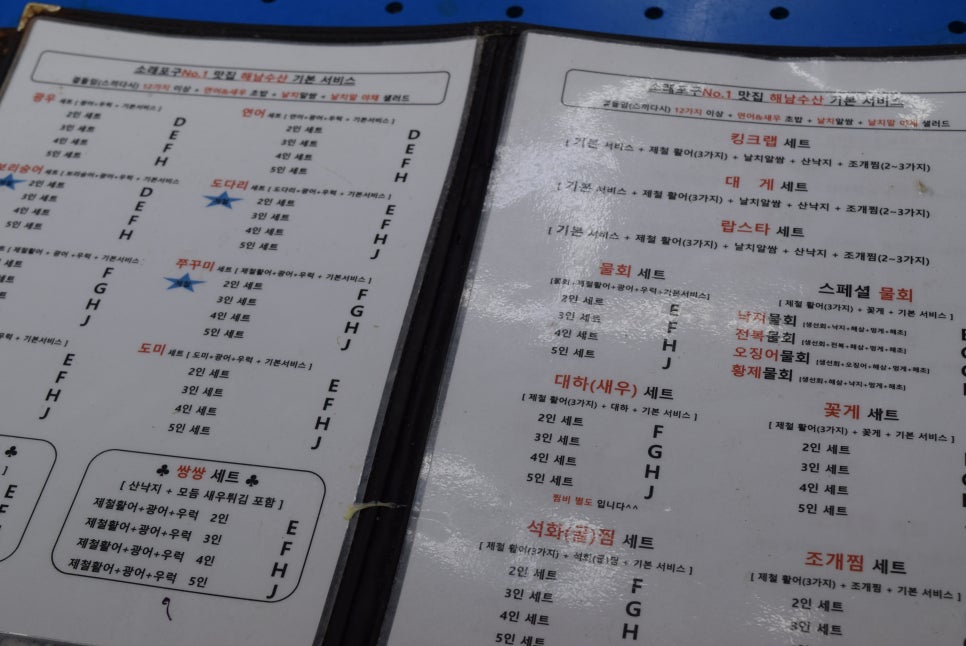 소래포구No.1 맛집 해남수산 기본 서비스
곁들임(스끼다시) 12가지 이상 + 연어&새우 초밥 + 날치알쌈 + 날치알 야채 샐러드
광우 세트 [ 광어+우럭 + 기본서비스 ]
2인 세트 D
3인 세트 E
4인 세트 F
5인 세트 H
연어 세트 [ 연어+광어+우럭 + 기본서비스 ]
2인 세트 D
3인 세트 E
4인 세트 F
5인 세트 H
보리숭어 세트 [ 보리숭어+광어+우럭 + 기본서비스 ]
2인 세트 D
3인 세트 E
4인 세트 F
5인 세트 H
도다리 세트 [ 도다리+광어+우럭 + 기본서비스 ]
2인 세트 E
3인 세트 F
4인 세트 H
5인 세트 J
세트 [ 제철활어+광어+우럭 + 기본서비스 ]
세트 F
세트 G
세트 H
J
쭈꾸미 세트 [ 제철활어+광어+우럭 + 기본서비스 ]
2인 세트 F
3인 세트 G
4인 세트 H
5인 세트 J
우럭 + 기본서비스 ]
E
F
H
J
도미 세트 [ 도미+광어+우럭 + 기본서비스 ]
2인 세트 E
3인 세트 F
4인 세트 H
5인 세트 J
♣
]
E
F
♣ 쌍쌍 세트 ♣
[ 산낙지 + 모듬 새우튀김 포함 ]
제철활어+광어+우럭 2인 E
제철활어+광어+우럭 3인 F
제철활어+광어+우럭 4인 H
제철활어+광어+우럭 5인 J
소래포구No.1 맛집 해남수산 기본 서비스
곁들임(스끼다시) 12가지 이상 + 연어&새우 초밥 + 날치알쌈 + 날치알 야채 샐러드
킹크랩 세트
[ 기본 서비스 + 제철 활어(3가지) + 날치알쌈 + 산낙지 + 조개찜(2~3가지)
대 게 세트
[ 기본 서비스 + 제철 활어(3가지) + 날치알쌈 + 산낙지 + 조개찜(2~3가지)
랍스타 세트
[ 기본 서비스 + 제철 활어(3가지) + 날치알쌈 + 산낙지 + 조개찜(2~3가지)
물회 세트
[물회+제철활어+광어+우럭+기본서비스]
2인 세트 E
3인 세트 F
4인 세트 H
5인 세트 J
스페셜 물회
[ 제철 활어(3가지) + 꽃게 + 기본 서비스 ]
낙지물회 [생선회+낙지+해삼+멍게+해초]
전복물회 [생선회+전복+해삼+멍게+해초]
오징어물회 [생선회+오징어+해삼+멍게+해초]
황제물회 [생선회+해삼+낙지+멍게+해초]
대하(새우) 세트
[ 제철 활어(3가지) + 대하 + 기본 서비스 ]
2인 세트 F
3인 세트 G
4인 세트 H
5인 세트 J
찜비 별도 입니다^^
꽃게 세트
[ 제철 활어(3가지) + 꽃게 + 기본 서비스 ]
2인 세트
3인 세트
4인 세트
5인 세트
석화(굴)찜 세트
[ 제철 활어(3가지) + 석화(굴)찜 + 기본 서비스 ]
2인 세트 F
3인 세트 G
4인 세트 H
5인 세트
조개찜 세트
[ 제철 활어(3가지) + 조개찜 + 기본 서비스 ]
2인 세트
3인 세트